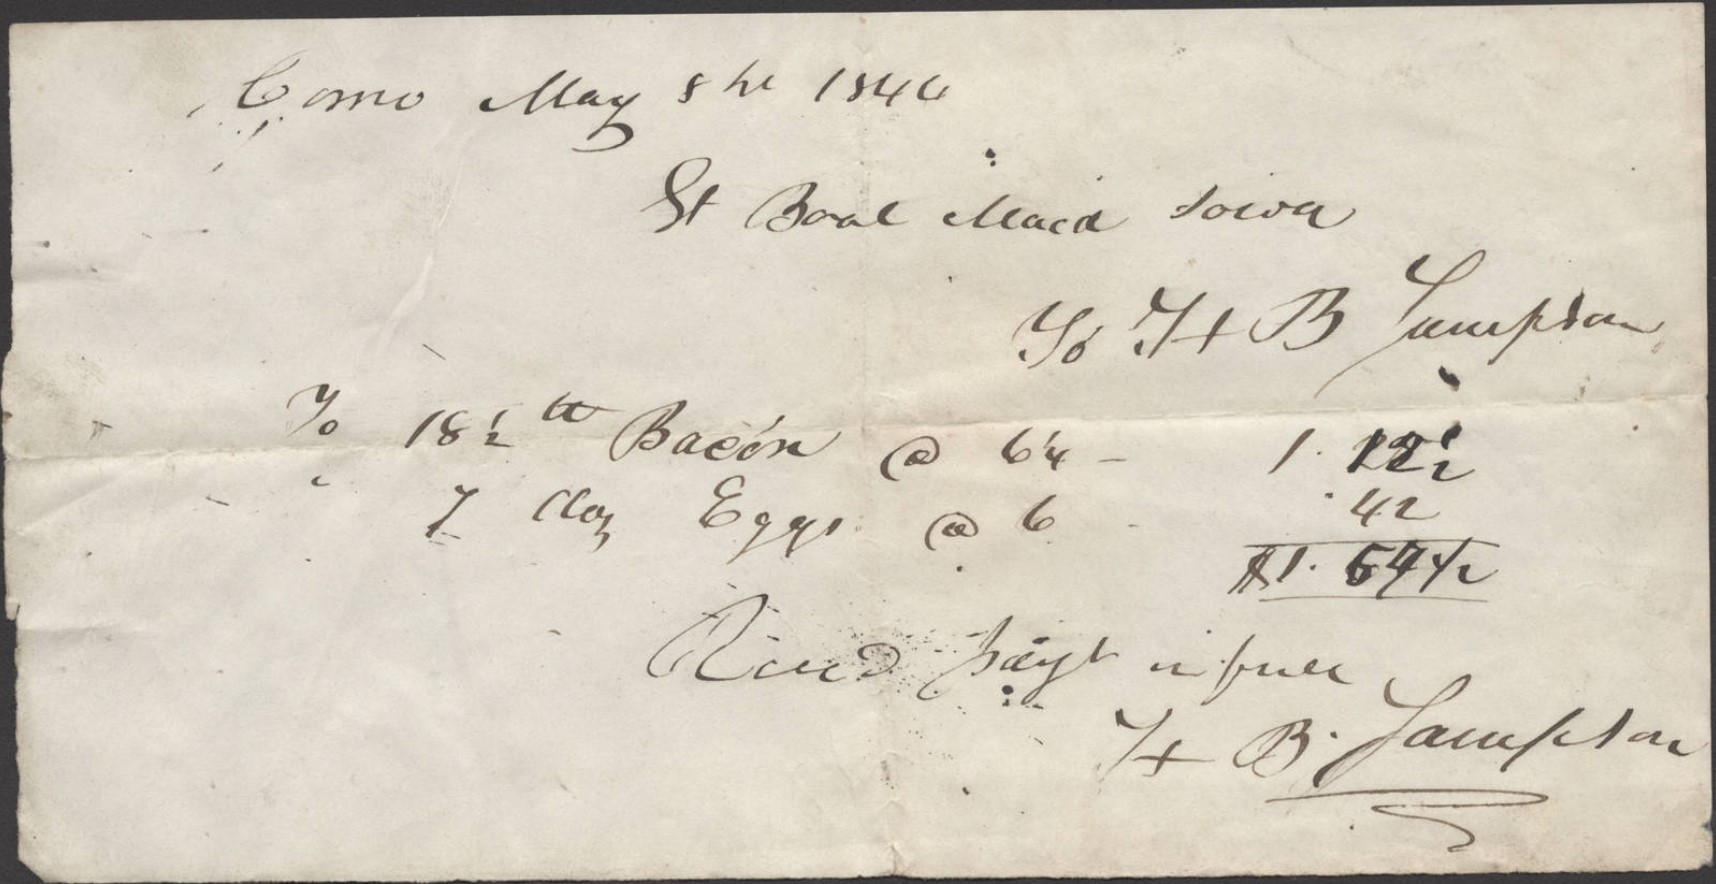 Como May 8th 1844
St Boat Maid Iowa
To H B Sampson
To 18 1/2 lb Bacon @ 6 1/4 - 1.12 1/2
7 doz Eggs @ 6 - .42
$1.54 1/2
Recd payt in full
H B. Sampson